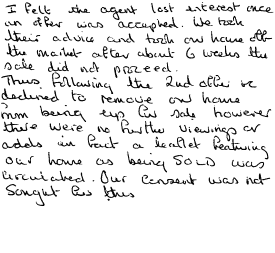 I felt the agent lost interest once
an offer was accepted. We took
their advice and took our home off
the market after about 6 weeks the
sale did not proceed.
Thus following the 2nd offer we
declined to remove our home
from being up for sale however
there were no further viewings or
adds in fact a leaflet featuring
our home as being SOLD was
circulated. Our consent was not
Sought for this